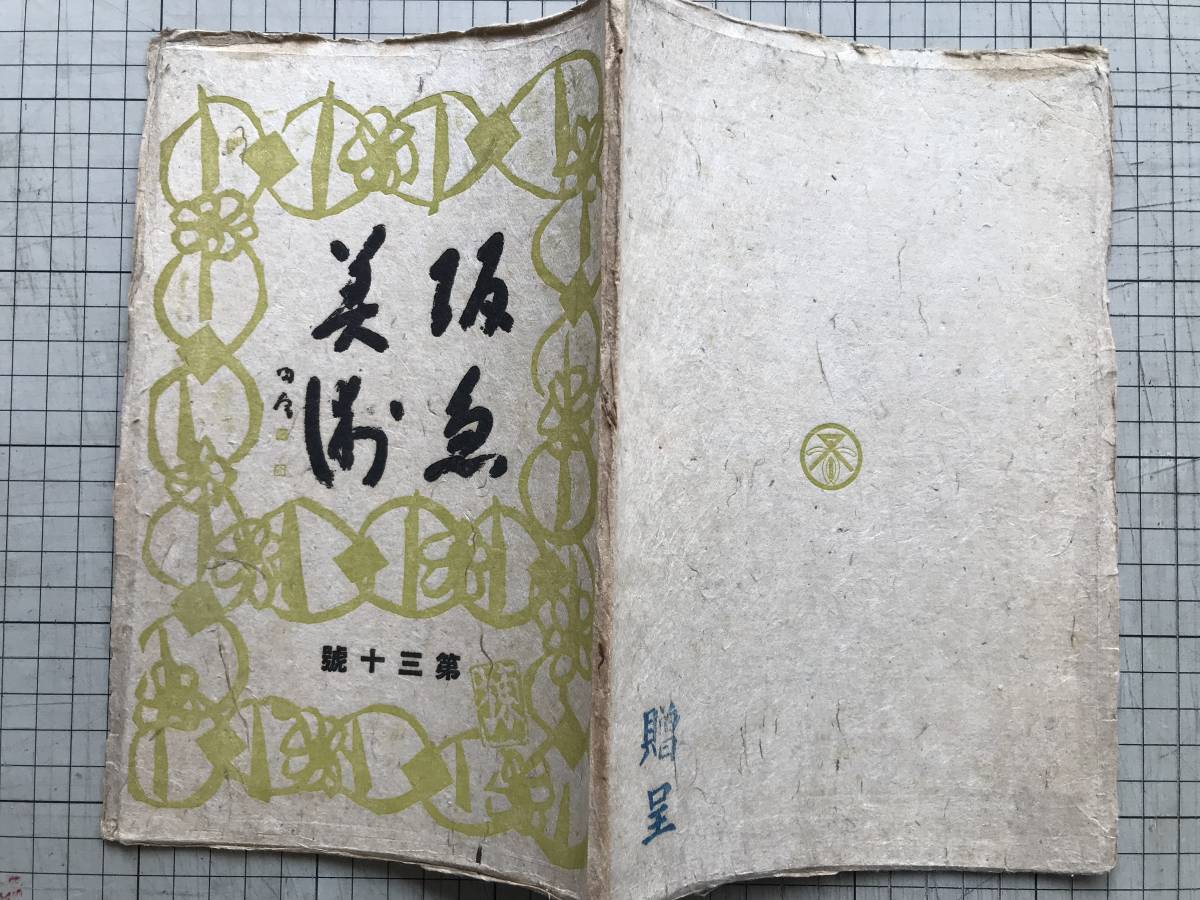 阪急
美術
第三十號
贈呈